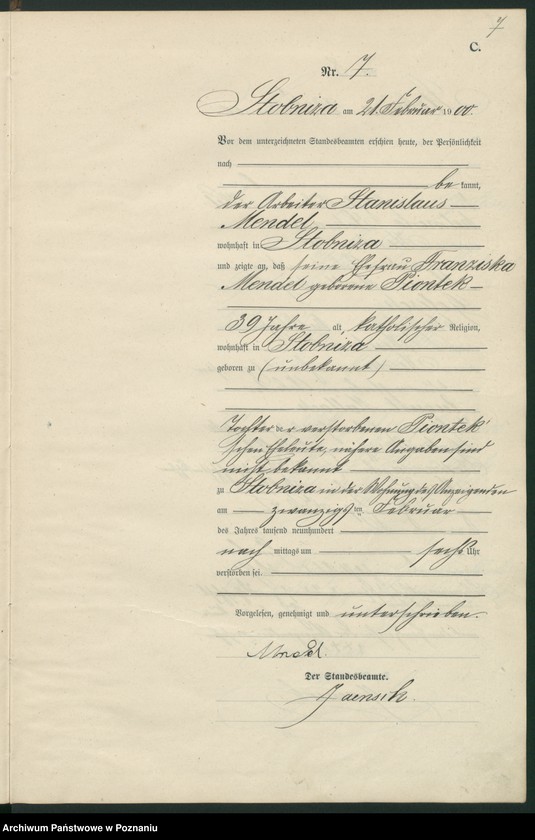 7
C.
Nr. 7.
Stobniza am 21. Februar 1900.
Vor dem unterzeichneten Standesbeamten erschien heute, der Persönlichkeit
nach
be kannt,
der Arbeiter Stanislaus
Mendel
wohnhaft in Stobniza
und zeigte an, daß seine Ehefrau Franziska
Mendel geborene Piontek
39 Jahre alt, katholischer Religion,
wohnhaft in Stobniza
geboren zu (unbekannt)
Tochter der verstorbenen Piontek'
schen Eheleute, nähere Angaben sind
nicht bekannt
zu Stobniza in der Wohnung des Anzeigenden
am zwanzigsten Februar
des Jahres tausend neunhundert
nach mittags um sechs Uhr
verstorben sei.
Vorgelesen, genehmigt und unterschrieben.
Mendel
Der Standesbeamte.
Jaensch.
Archiwum Państwowe w Poznaniu